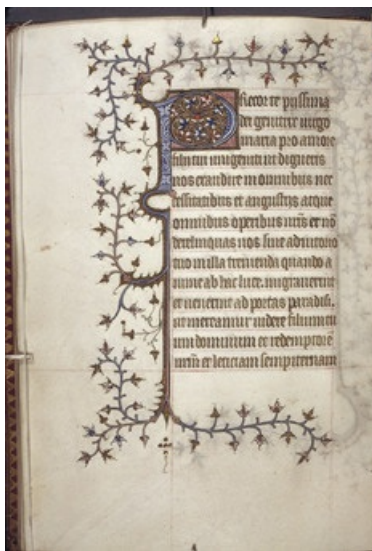 Precor te pyssima
dei genitrix uirgo
maria pro amore
filii tui unigeniti ut digneris
nos exaudire in omnibus nec
cessitatibus et angustijs atque
omnibus operibus nr̄is et nō
derelinquas nos sine adiutorio
tuo in illa tremenda quando a
nime ab hac luce migrauerint
et uenerint ad portas paradisi.
ut mereamur uidere filium tu
um dominum et redemptorē
nr̄m et leticiam sempiternam